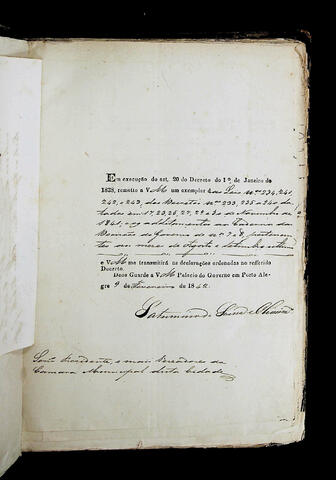 Em execução do art. 20 do Decreto do 1º de Janeiro de
1838, remetto a V.M um exemplar das Leis Nos 234, 241,
242, e 243, dos Decretos Nos 233, 235 a 240, da-
tados em 17, 23, 25, 27, 29 e 30 de Novembro de
1841, e os additamentos ao Caderno das
Decisões do Governo de nos 7 e 8, pertencen-
tes aos mezes de Agosto e Setembro
e V.M me transmittirá as declarações ordenadas no referido
Decreto.
Deos Guarde a V.M Palacio do Governo em Porto Ale-
gre 9 de Fevereiro de 1842.
Saturnino de Souza e Oliveira
Snrs. Presidente, e mais Vereadores da
Camara Municipal desta Cidade